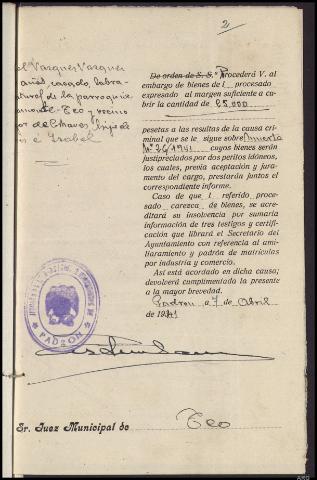 2
el Vazquez Vazquez
años, casado, labra-
atural de la parroquia
Teo y vecino
de Chaves, hijo de
é Isabel
De orden de S. S.ª Procederá V. al
embargo de bienes de l procesado
expresado al margen suficiente a cu-
brir la cantidad de 25.000
pesetas a las resultas de la causa cri-
minal que se le sigue sobre muerte
Nº 26/1941 cuyos bienes serán
justipreciados por dos peritos idóneos,
los cuales, previa aceptación y jura-
mento del cargo, prestarán juntos el
correspondiente informe.
Caso de que l referido proce-
sado carezca de bienes, se acre-
ditará su insolvencia por sumaria
información de tres testigos y certifi-
cación que librará el Secretario del
Ayuntamiento con referencia al ami-
llaramiento y padrón de matrículas
por industria y comercio.
Así está acordado en dicha causa;
devolverá cumplimentado la presente
a la mayor brevedad.
Padron a 7 de Abril
de 1941
PADRON
Sr. Juez Municipal de Teo